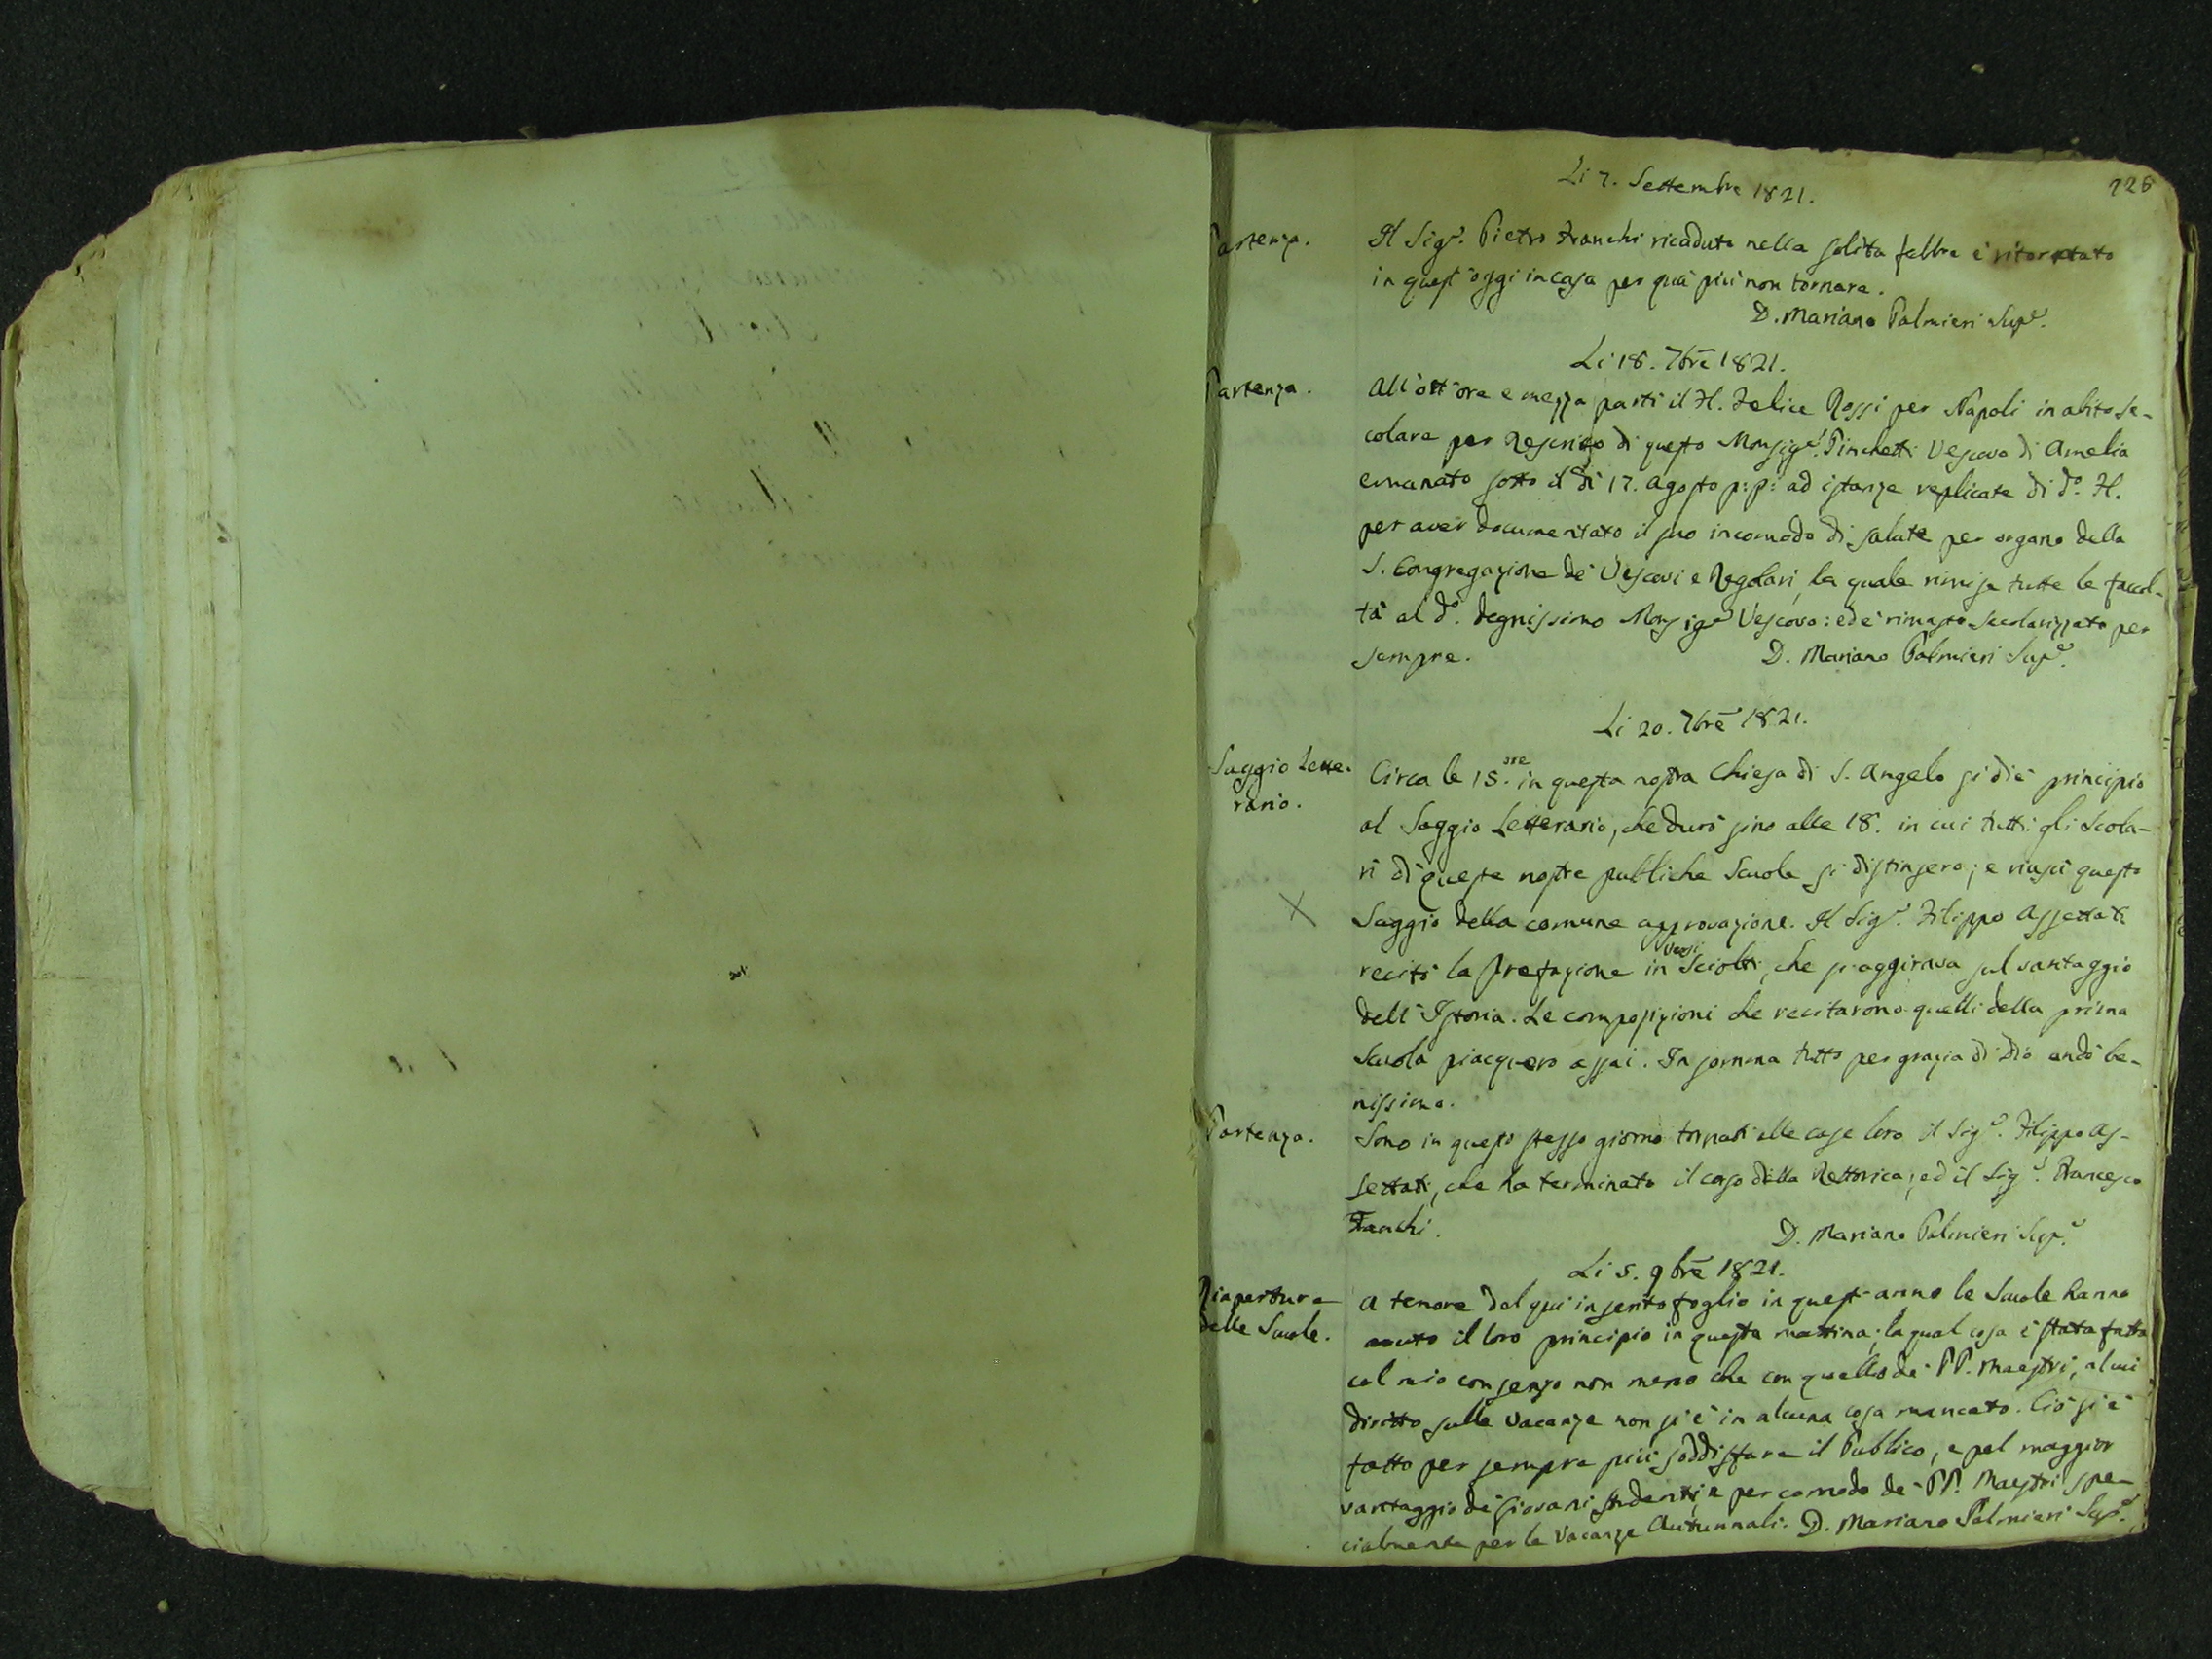 126
Li 7. Settembre 1821.
Partenza.
Il Sigr. Pietro Franchi ricaduto nella solita febbre è ritornato
in quest'oggi in casa per quà più non tornare.
D. Mariano Palmieri Supe.
Li 18. 7bre 1821.
Partenza.
All'ott'ore e mezza partì il H. Felice Rossi per Napoli in abito se-
colare per Rescritto di questo Monsigr. Pinchetti Vescovo di Amelia
emanato sotto il dì 17. Agosto p:p: ad istanze replicate di do. H.
per aver documentato il suo incomodo di salute per organo della
S. Congregazione de' Vescovi e Regolari, la quale rimise tutte le facol-
tà al do. degnissimo Monsigr Vescovo: ed è rimasto secolarizzato per
sempre.
D. Mariano Palmieri Supe.
Li 20. 7bre 1821.
Saggio Lette-
rario.
Circa le 15. ore in questa nostra Chiesa di S. Angelo si diè principio
al Saggio Letterario, che durò sino alle 18. in cui tutti gli Scola-
ri di queste nostre publiche Scuole si distinsero; e riuscì questo
Saggio della comune approvazione. Il Sigr. Filippo Assettati
recitò la Prefazione in versi Sciolti, che s'aggirava sul vantaggio
dell'Istoria. Le composizioni che recitarono quelli della prima
Scuola piacquero assai. In somma tutto per grazia di Dio andò be-
nissimo.
Partenza.
Sono in questo stesso giorno tornati alle case loro il Sigr. Filippo As-
settati, che ha terminato il corso della Rettorica; ed il Sigr. Francesco
Franchi.
D. Mariano Palmieri Supe.
Li 5. 9bre 1821.
Riapertura
delle Scuole.
A tenore del qui inserito foglio in quest'anno le Scuole hanno
avuto il loro principio in questa mattina; la qual cosa è stata fatta
col mio consenso non meno che con quello de' PP. Maestri, al cui
diritto sulle vacanze non si è in alcuna cosa mancato. Ciò si è
fatto per sempre più soddisfare il Publico, e pel maggior
vantaggio de' Giovani studenti, e per comodo de' PP. Maestri spe-
cialmente per le Vacanze Autunnali. D. Mariano Palmieri Supe.